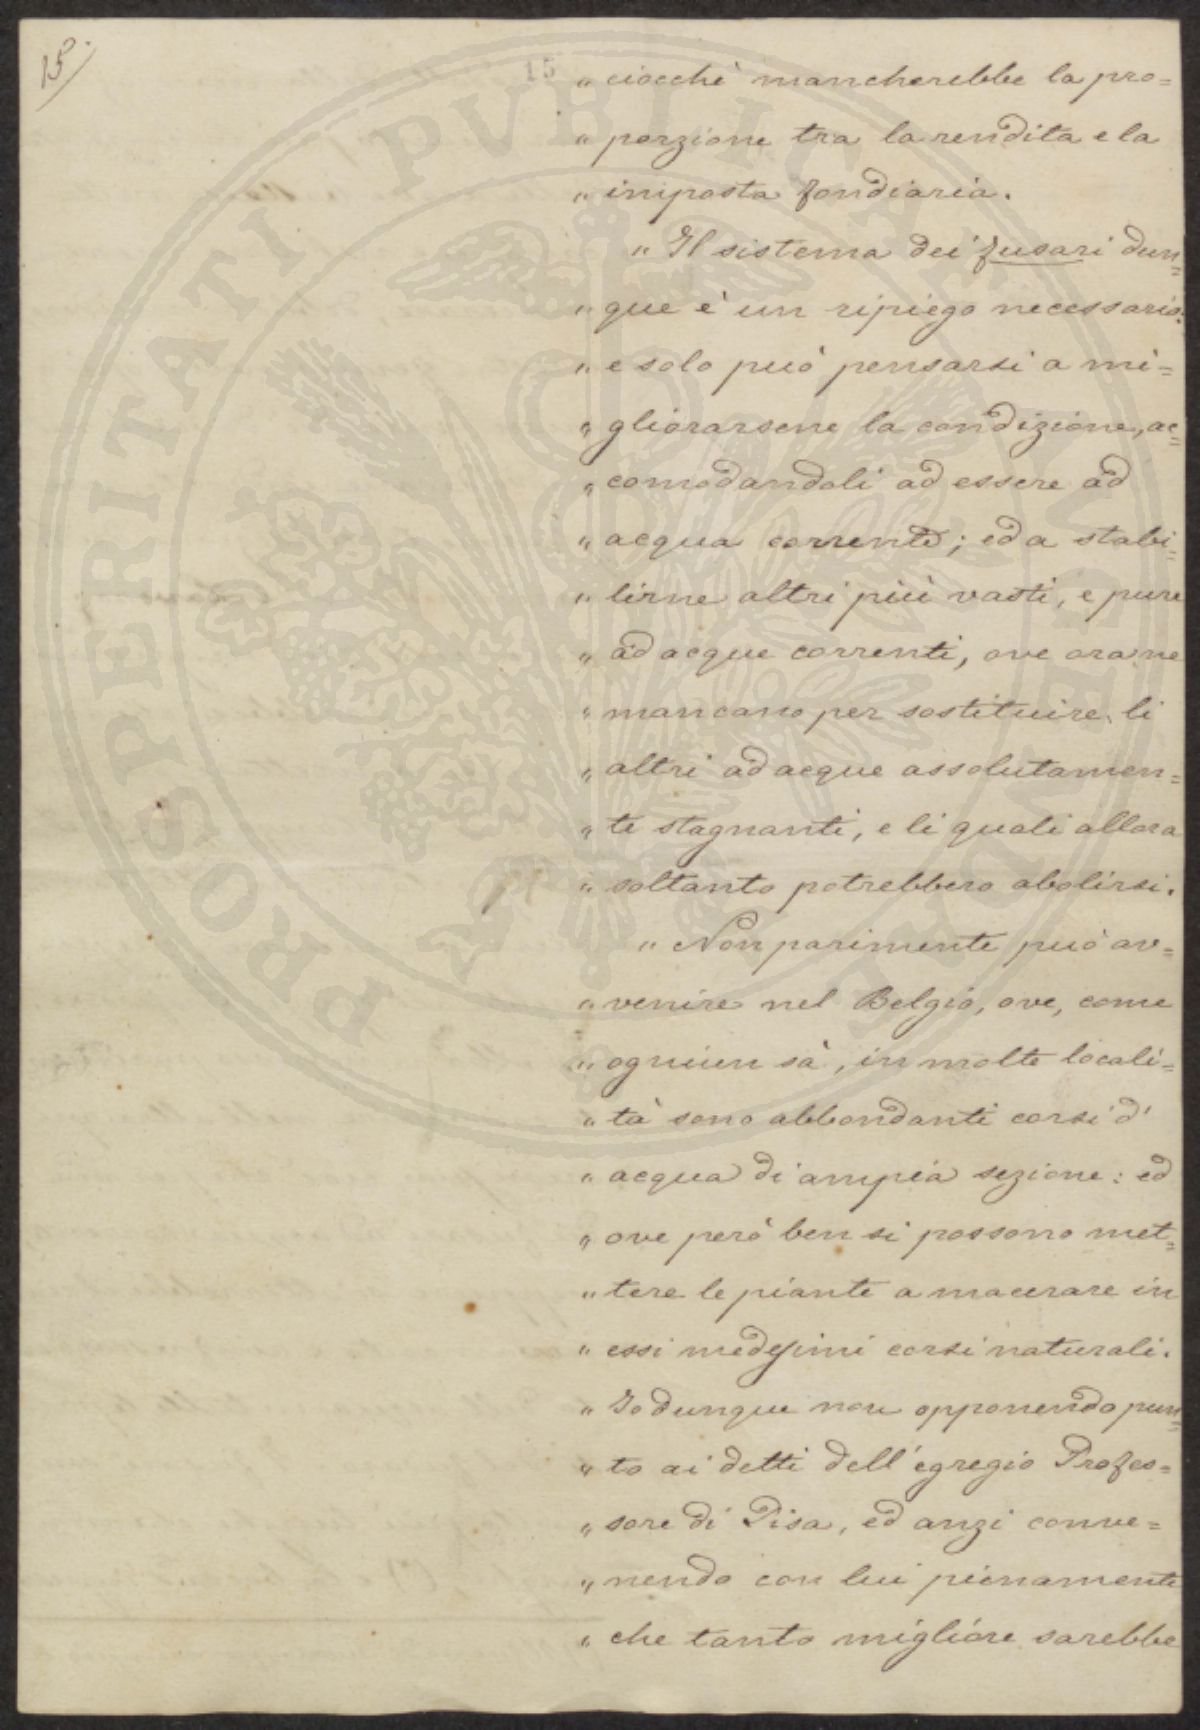 15.
15
„ ciocchè mancherebbe la pro=
„ porzione tra la rendita e la
„ imposta fondiaria.
„ Il sistema dei fusari dun=
„ que è un ripiego necessario:
„ e solo può pensarsi a mi=
„ gliorarsene la condizione, ac=
„ comodandoli ad essere ad
„ acqua corrente; ed a stabi=
„ lirne altri più vasti, e pure
„ ad acque correnti, ove ora ne
„ mancano per sostituire li
„ altri ad acque assolutamen=
„ te stagnanti, e li quali allora
„ soltanto potrebbero abolirsi.
„ Non parimente può av=
„ venire nel Belgio, ove, come
„ ogniun sà, in molte locali=
„ tà sono abbondanti corsi d'
„ acqua di ampia sezione: ed
„ ove però ben si possono met=
„ tere le piante a macerare in
„ essi medesimi corsi naturali.
„ Io dunque non opponendo pun=
„ to ai detti dell'egregio Profes=
„ sore di Pisa, ed anzi conve=
„ nendo con lui pienamente
„ che tanto migliore sarebbe
PROSPERITATI PVBLICAE AVGENDAE